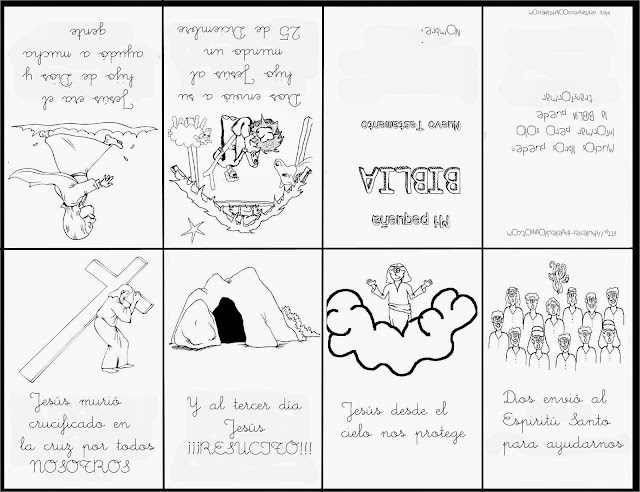 Jesús era el
hijo de Dios y
ayudó a mucha
gente
Dios envió a su
hijo Jesús al
mundo un
25 de Diciembre
Mi pequeña
BIBLIA
Nuevo Testamento
Nombre:
Muchos libros pueden
informar pero solo
la BIBLIA puede
transformar
Jesús murió
crucificado en
la cruz por todos
NOSOTROS
Y al tercer día
Jesús
¡¡¡RESUCITO!!!
Jesús desde el
cielo nos protege
Dios envió al
Espiritú Santo
para ayudarnos